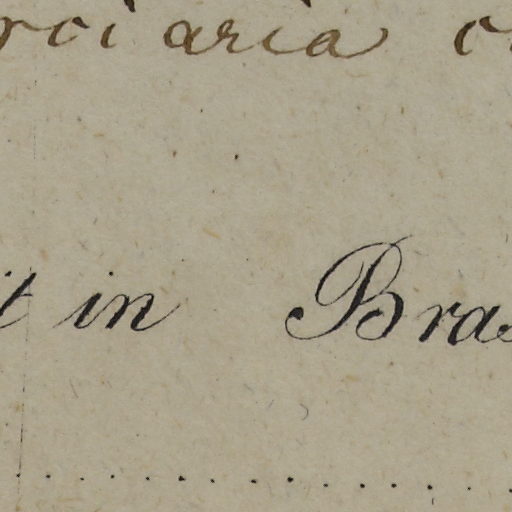 rciaria c
it in Bras